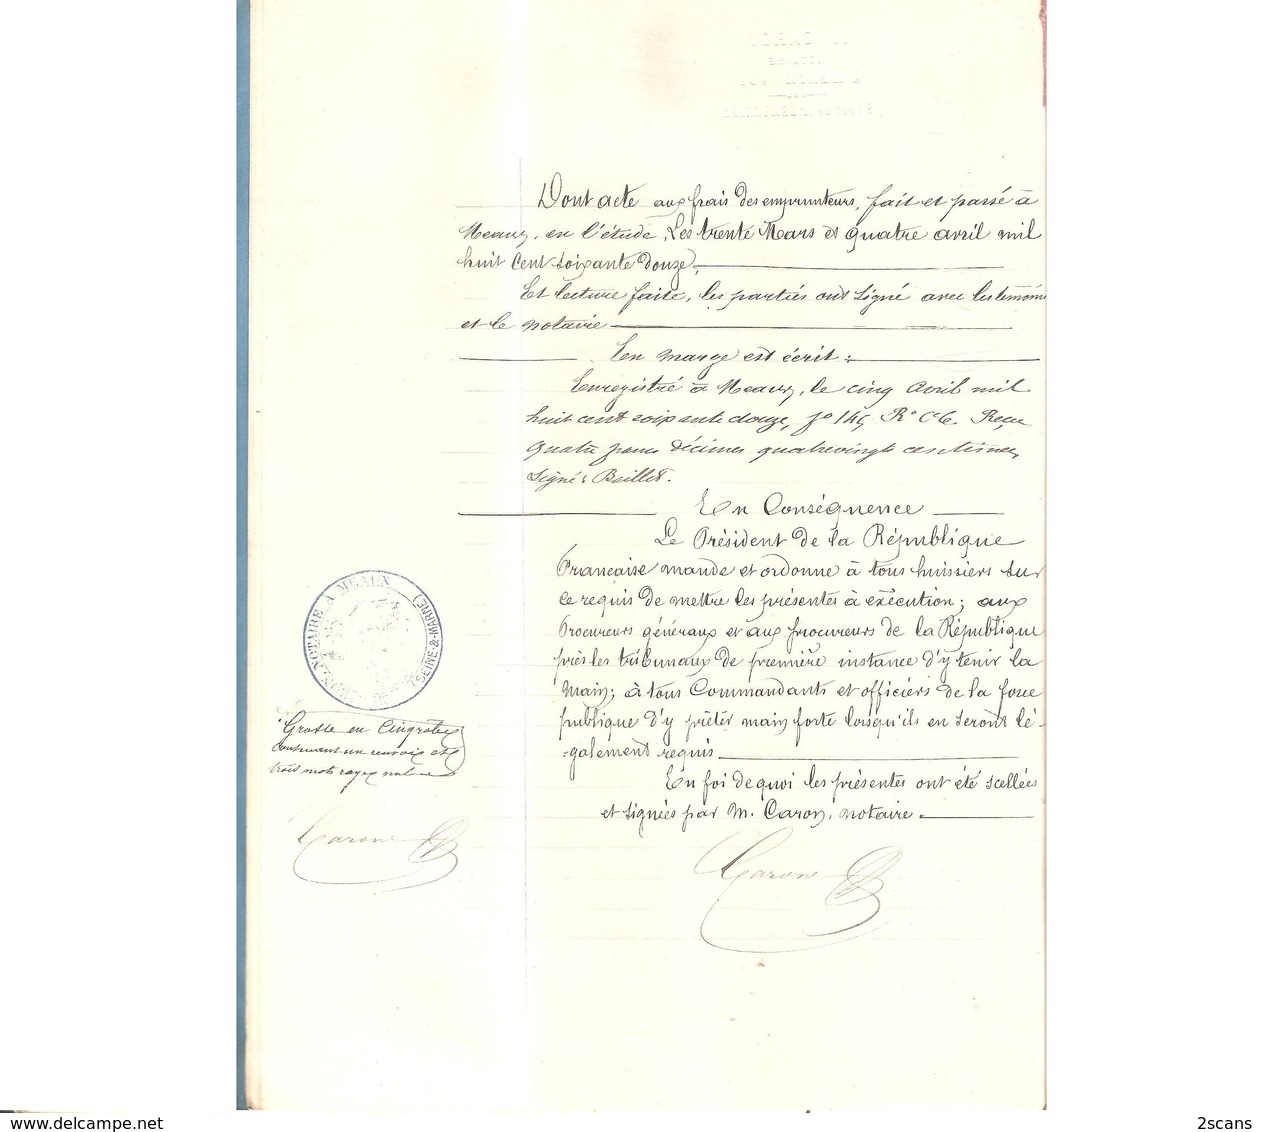 Dont acte aux frais des emprunteurs, fait et passé à
Meaux, en l'étude, Les trente Mars et quatre avril mil
huit cent soixante douze,
Et lecture faite, les parties ont signé avec les témoins
et le notaire
En marge est écrit:
Enregistré à Meaux, le cinq avril mil
huit cent soixante douze, fo 145 Ro C6. Reçu
quatre francs décimes quatrevingt centimes,
Signé:
En Conséquence
Le Président de la République
Française mande et ordonne à tous huissiers sur
ce requis de mettre les présentes à exécution; aux
Procureurs généraux et aux procureurs de la République
près les tribunaux de première instance d'y tenir la
main; à tous Commandants et officiers de la force
publique d'y prêter main forte lorsqu'ils en seront lé-
-galement requis
En foi de quoi les présentes ont été scellées
et signées par M. Caron, notaire.
Caron
NOTAIRE A MEAUX
(SEINE-&-MARNE)
Grosse en cinq roles
contenant un renvoi et
trois mots rayés nuls
Caron
www.delcampe.net
2scans